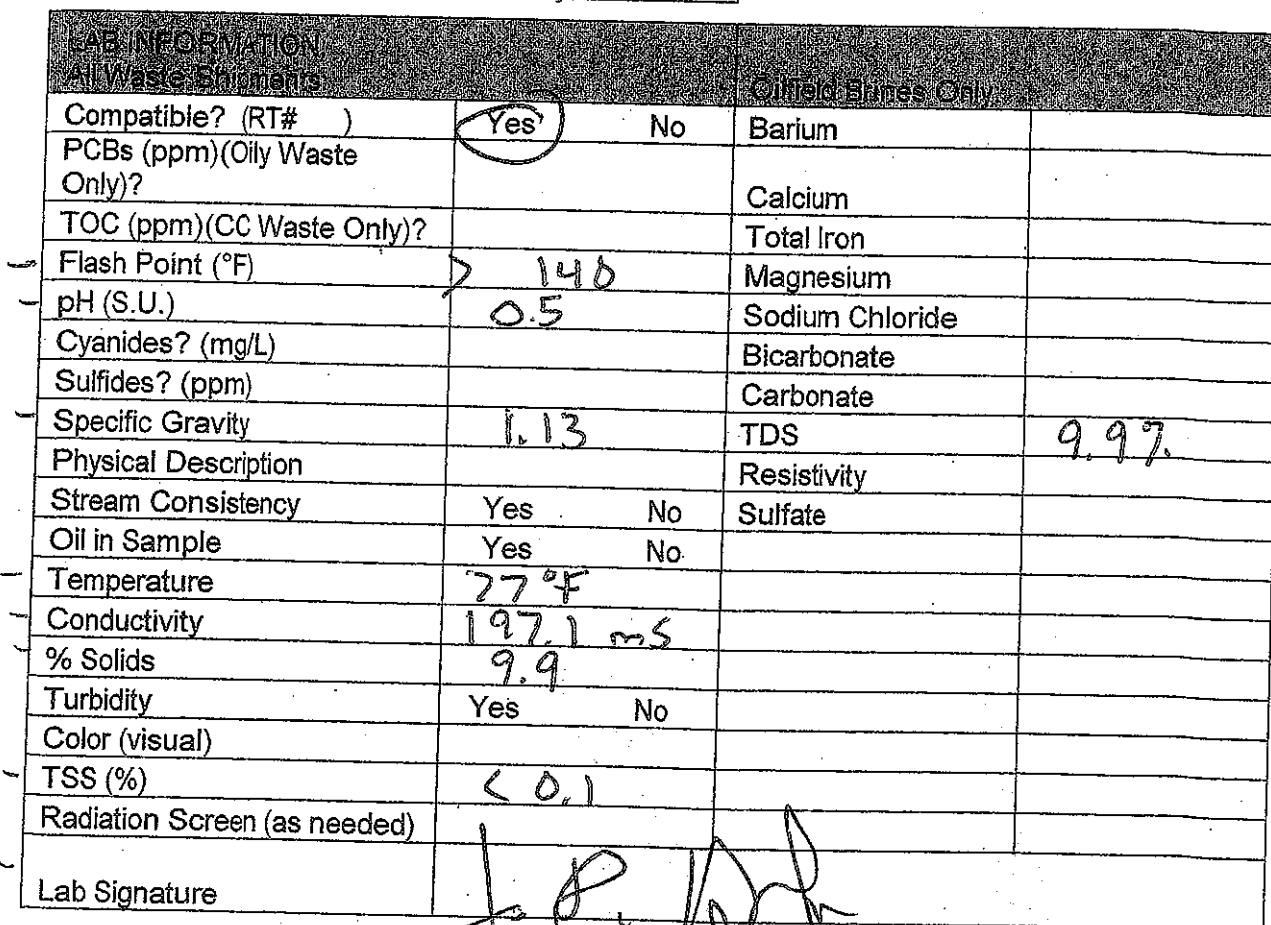 LAB INFORMATION
All Waste Shipments Oilfield Brines Only
Compatible? (RT# ) Yes No Barium
PCBs (ppm)(Oily Waste
Only)? Calcium
TOC (ppm)(CC Waste Only)? Total Iron
Flash Point (°F) > 140 Magnesium
pH (S.U.) 0.5 Sodium Chloride
Cyanides? (mg/L) Bicarbonate
Sulfides? (ppm) Carbonate
Specific Gravity 1.13 TDS 9.9%
Physical Description Resistivity
Stream Consistency Yes No Sulfate
Oil in Sample Yes No
Temperature 77°F
Conductivity 197.1 mS
% Solids 9.9
Turbidity Yes No
Color (visual)
TSS (%) < 0.1
Radiation Screen (as needed)
Lab Signature